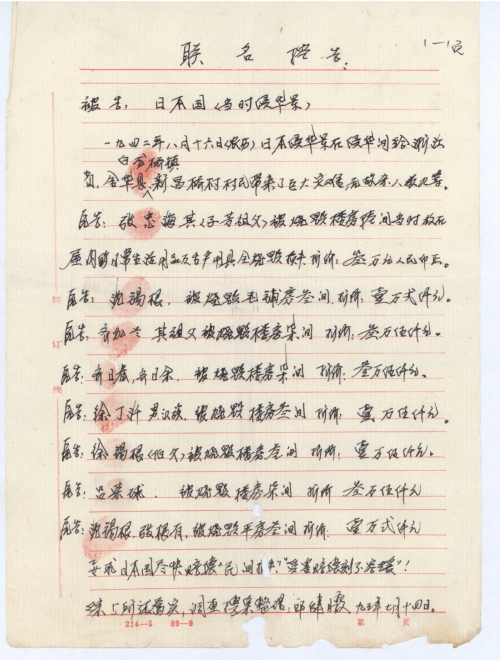 1-1页
联名控告:
被告: 日本国(当时侵华军)
一九四二年八月十六日(农历)日本侵华军在侵华间给浙江
白龙桥镇
省,金华县,新昌桥村村民带来了巨大灾难
原告: 张忠海其(子 祖父)被烧毁楼房 间当时放在
屋内的日常生活用品及生产用具全烧毁损失,折价: 叁万元人民币正。
原告: 锡根,被烧毁 铺房叁间,折价,壹万弍仟元。
原告: 其祖父被烧毁楼房柒间 折价: 叁万伍仟元。
原告: 被烧毁楼房柒间 折价: 叁万伍仟元。
原告: 徐 被烧毁楼房叁间 折价, 壹万伍仟元。
原告: 徐锡根(伯父)被烧毁楼房叁间 折价: 壹万伍仟元。
原告: 吕荣球. 被烧毁楼房柒间 折价 叁万伍仟元
原告: 锡根, 根有,被烧毁平房叁间 折价. 壹万弍仟元
要求日本国尽快赔偿"民间 "受害赔偿刻不容缓"!
以上所述属实,调查 集整理, 九五年七月十四日。
214—5 89—9 第 页
装
订
线